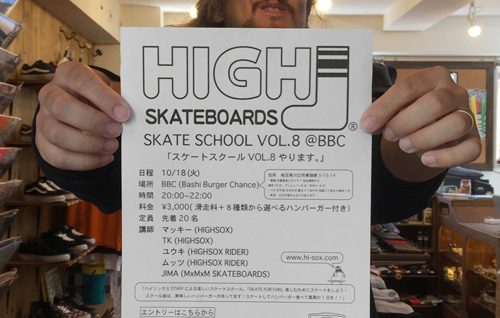 HIGH
SKATEBOARDS
®
SKATE SCHOOL VOL.8 @BBC
「スケートスクール VOL.8 やります。」
日程 10/18(火)
場所 BBC (Bashi Burger Chance)
時間 20:00~22:00
料金 ¥3,000( 滑走料+8種類から選べるハンバーガー付き)
定員 先着20名
講師 マッキー (HIGHSOX)
TK (HIGHSOX)
ユウキ (HIGHSOX RIDER)
ムッツ (HIGHSOX RIDER)
JIMA (MxMxM SKATEBOARDS)
www.hi-sox.com
「ハイソックス STAFF による楽しいスケートスクール。「SKATE FOR FUN」 楽しむためにスケートをしよう!
エントリーはこちらから